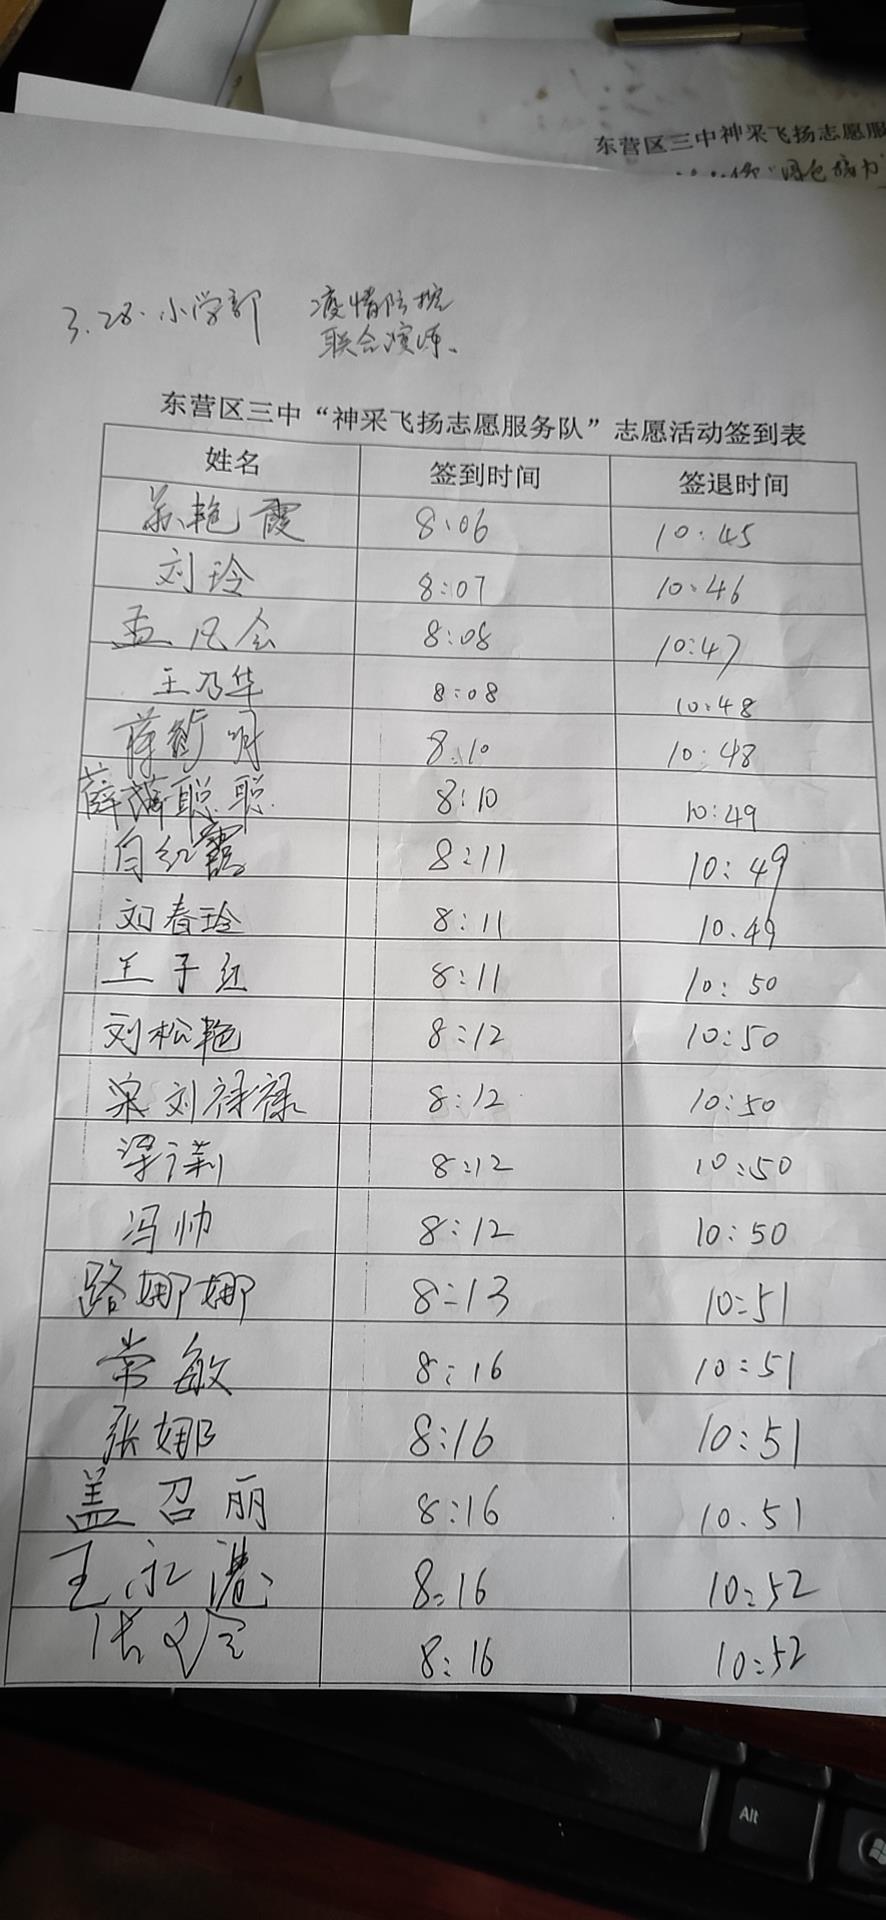 东营区三中神采飞扬志愿服
3.28. 小学部 疫情防控
联合演练.
东营区三中“神采飞扬志愿服务队”志愿活动签到表
姓名 签到时间 签退时间
苏艳霞 8:06 10:45
刘玲 8:07 10:46
孟凡会 8:08 10:47
王乃华 8:08 10:48
8:10 10:48
聪聪 8:10 10:49
白红霞 8:11 10:49
刘春玲 8:11 10.49
王子红 8:11 10:50
刘松艳 8:12 10:50
刘禄禄 8:12 10:50
梁潇 8:12 10:50
冯帅 8:12 10:50
路娜娜 8:13 10:51
常敏 8:16 10:51
张娜 8:16 10:51
盖召丽 8:16 10.51
王永港 8:16 10:52
8:16 10:52
Alt